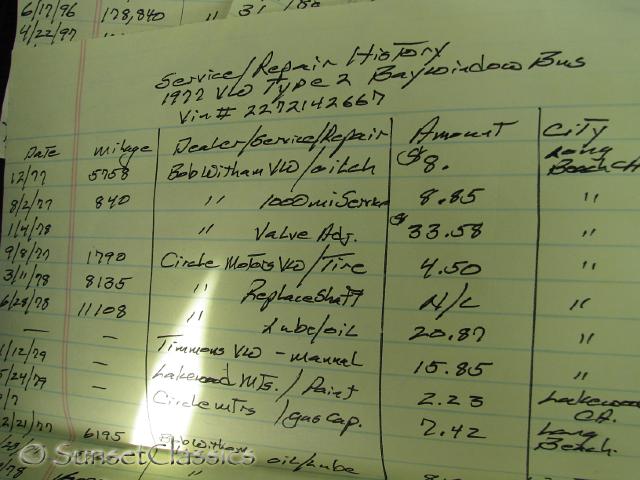 6/17/96 178,840 " 31 180
4/22/97
Service/Repair History
1977 VW Type 2 Baywindow Bus
Vin# 2272142667
Date Milage Dealer/Service/Repair Amount City
12/77 5758 Bob Witham VW/oilch $8. Long Beach CA
8/2/77 840 " 1000 mi Service 8.85 "
1/4/78 " Valve Adj. $33.58 "
9/8/77 1790 Circle Motors VW/Tire 4.50 "
3/11/78 8135 " Replace Shaft N/C "
6/28/78 11108 " Lube/oil 20.87 "
— — Timmons VW - manual 15.85 "
1/12/79 — Lakewood Mts. / Paint 2.23 Lakewood CA.
5/24/79 — Circle mtrs / gas cap. 7.42 Long Beach.
2/21/77 6195 Bob Witham
" oil/lube
© SunsetClassics